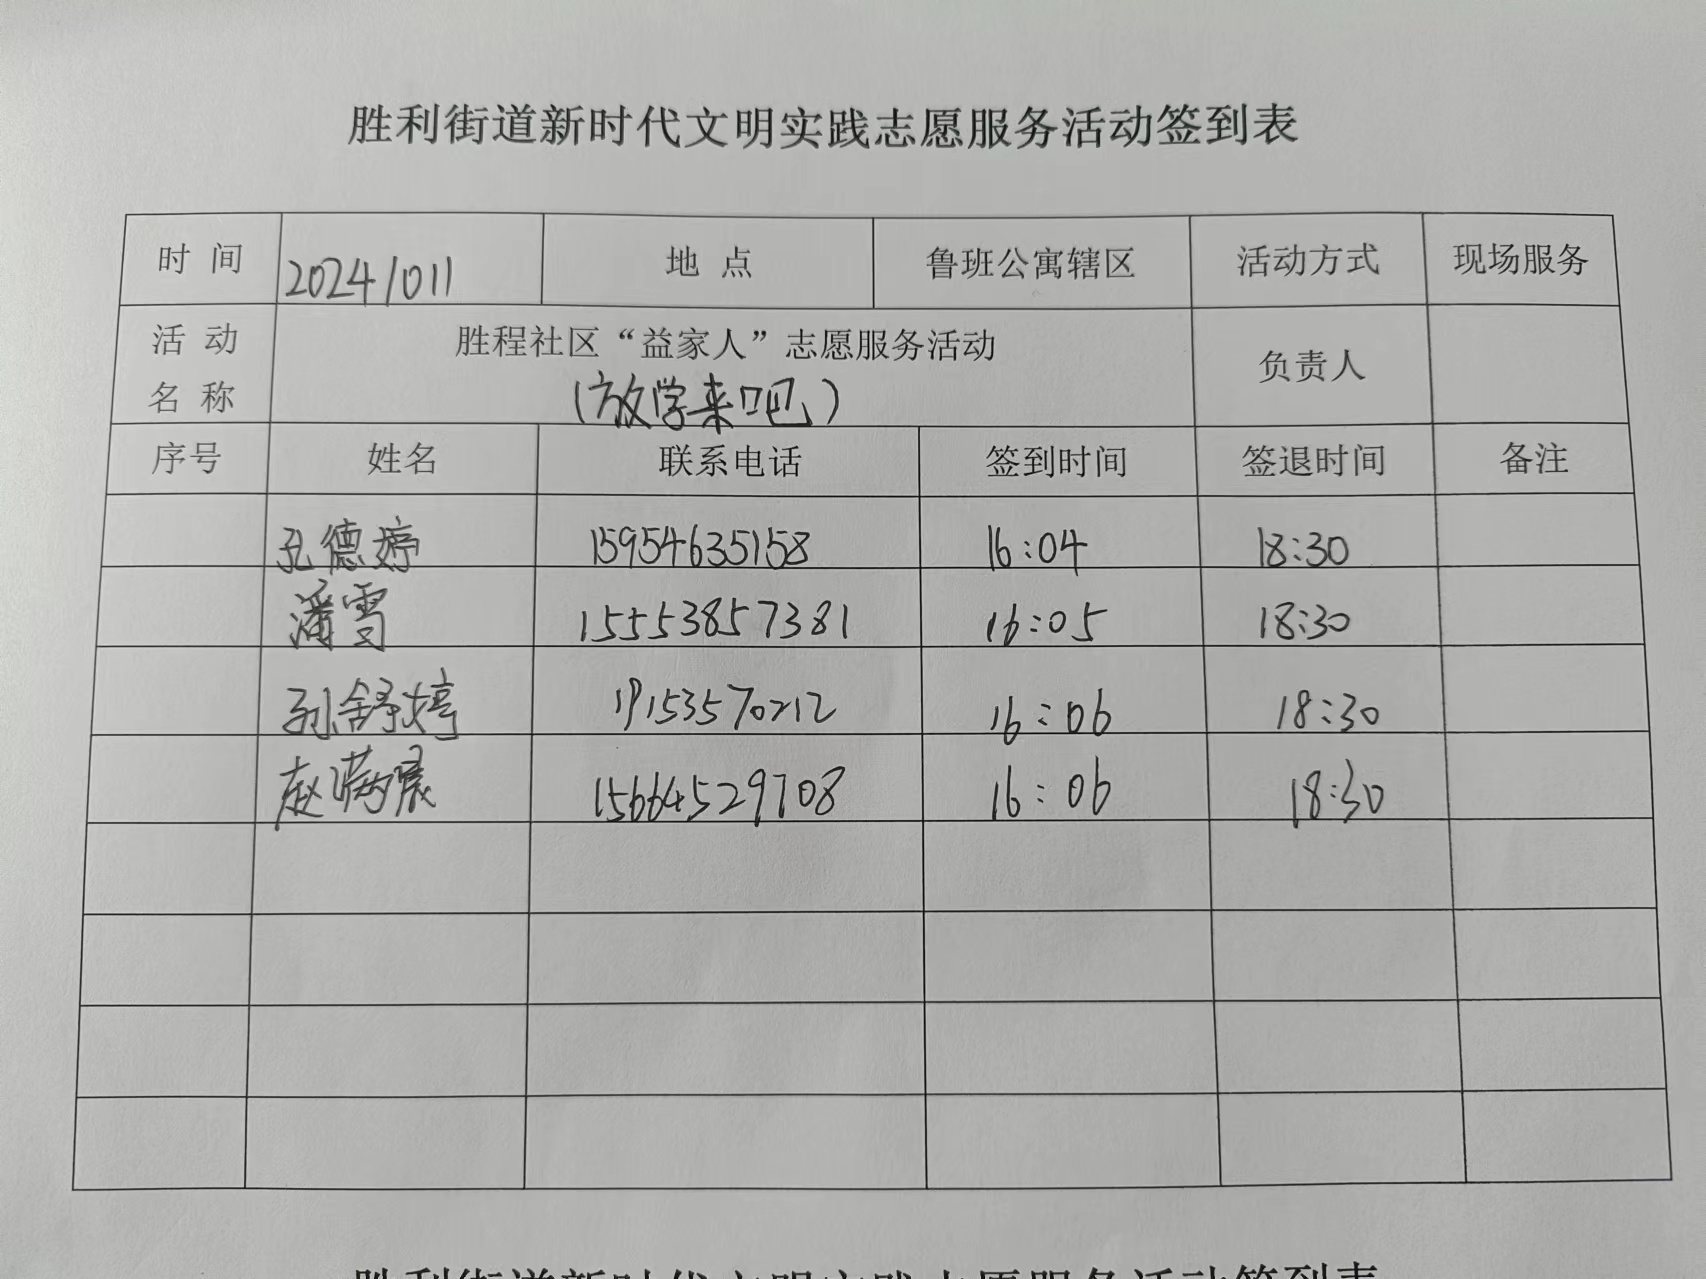 胜利街道新时代文明实践志愿服务活动签到表
时 间 20241011 地 点 鲁班公寓辖区 活动方式 现场服务
活 动 名 称 胜程社区“益家人”志愿服务活动 负责人
(放学来吧)
序号 姓名 联系电话 签到时间 签退时间 备注
孔德婷 15954635158 16:04 18:30
潘雪 15553857381 16:05 18:30
孙舒婷 19153570212 16:06 18:30
赵 晨 15664529708 16:06 18:30
胜利街道新时代文明实践志愿服务活动签到表